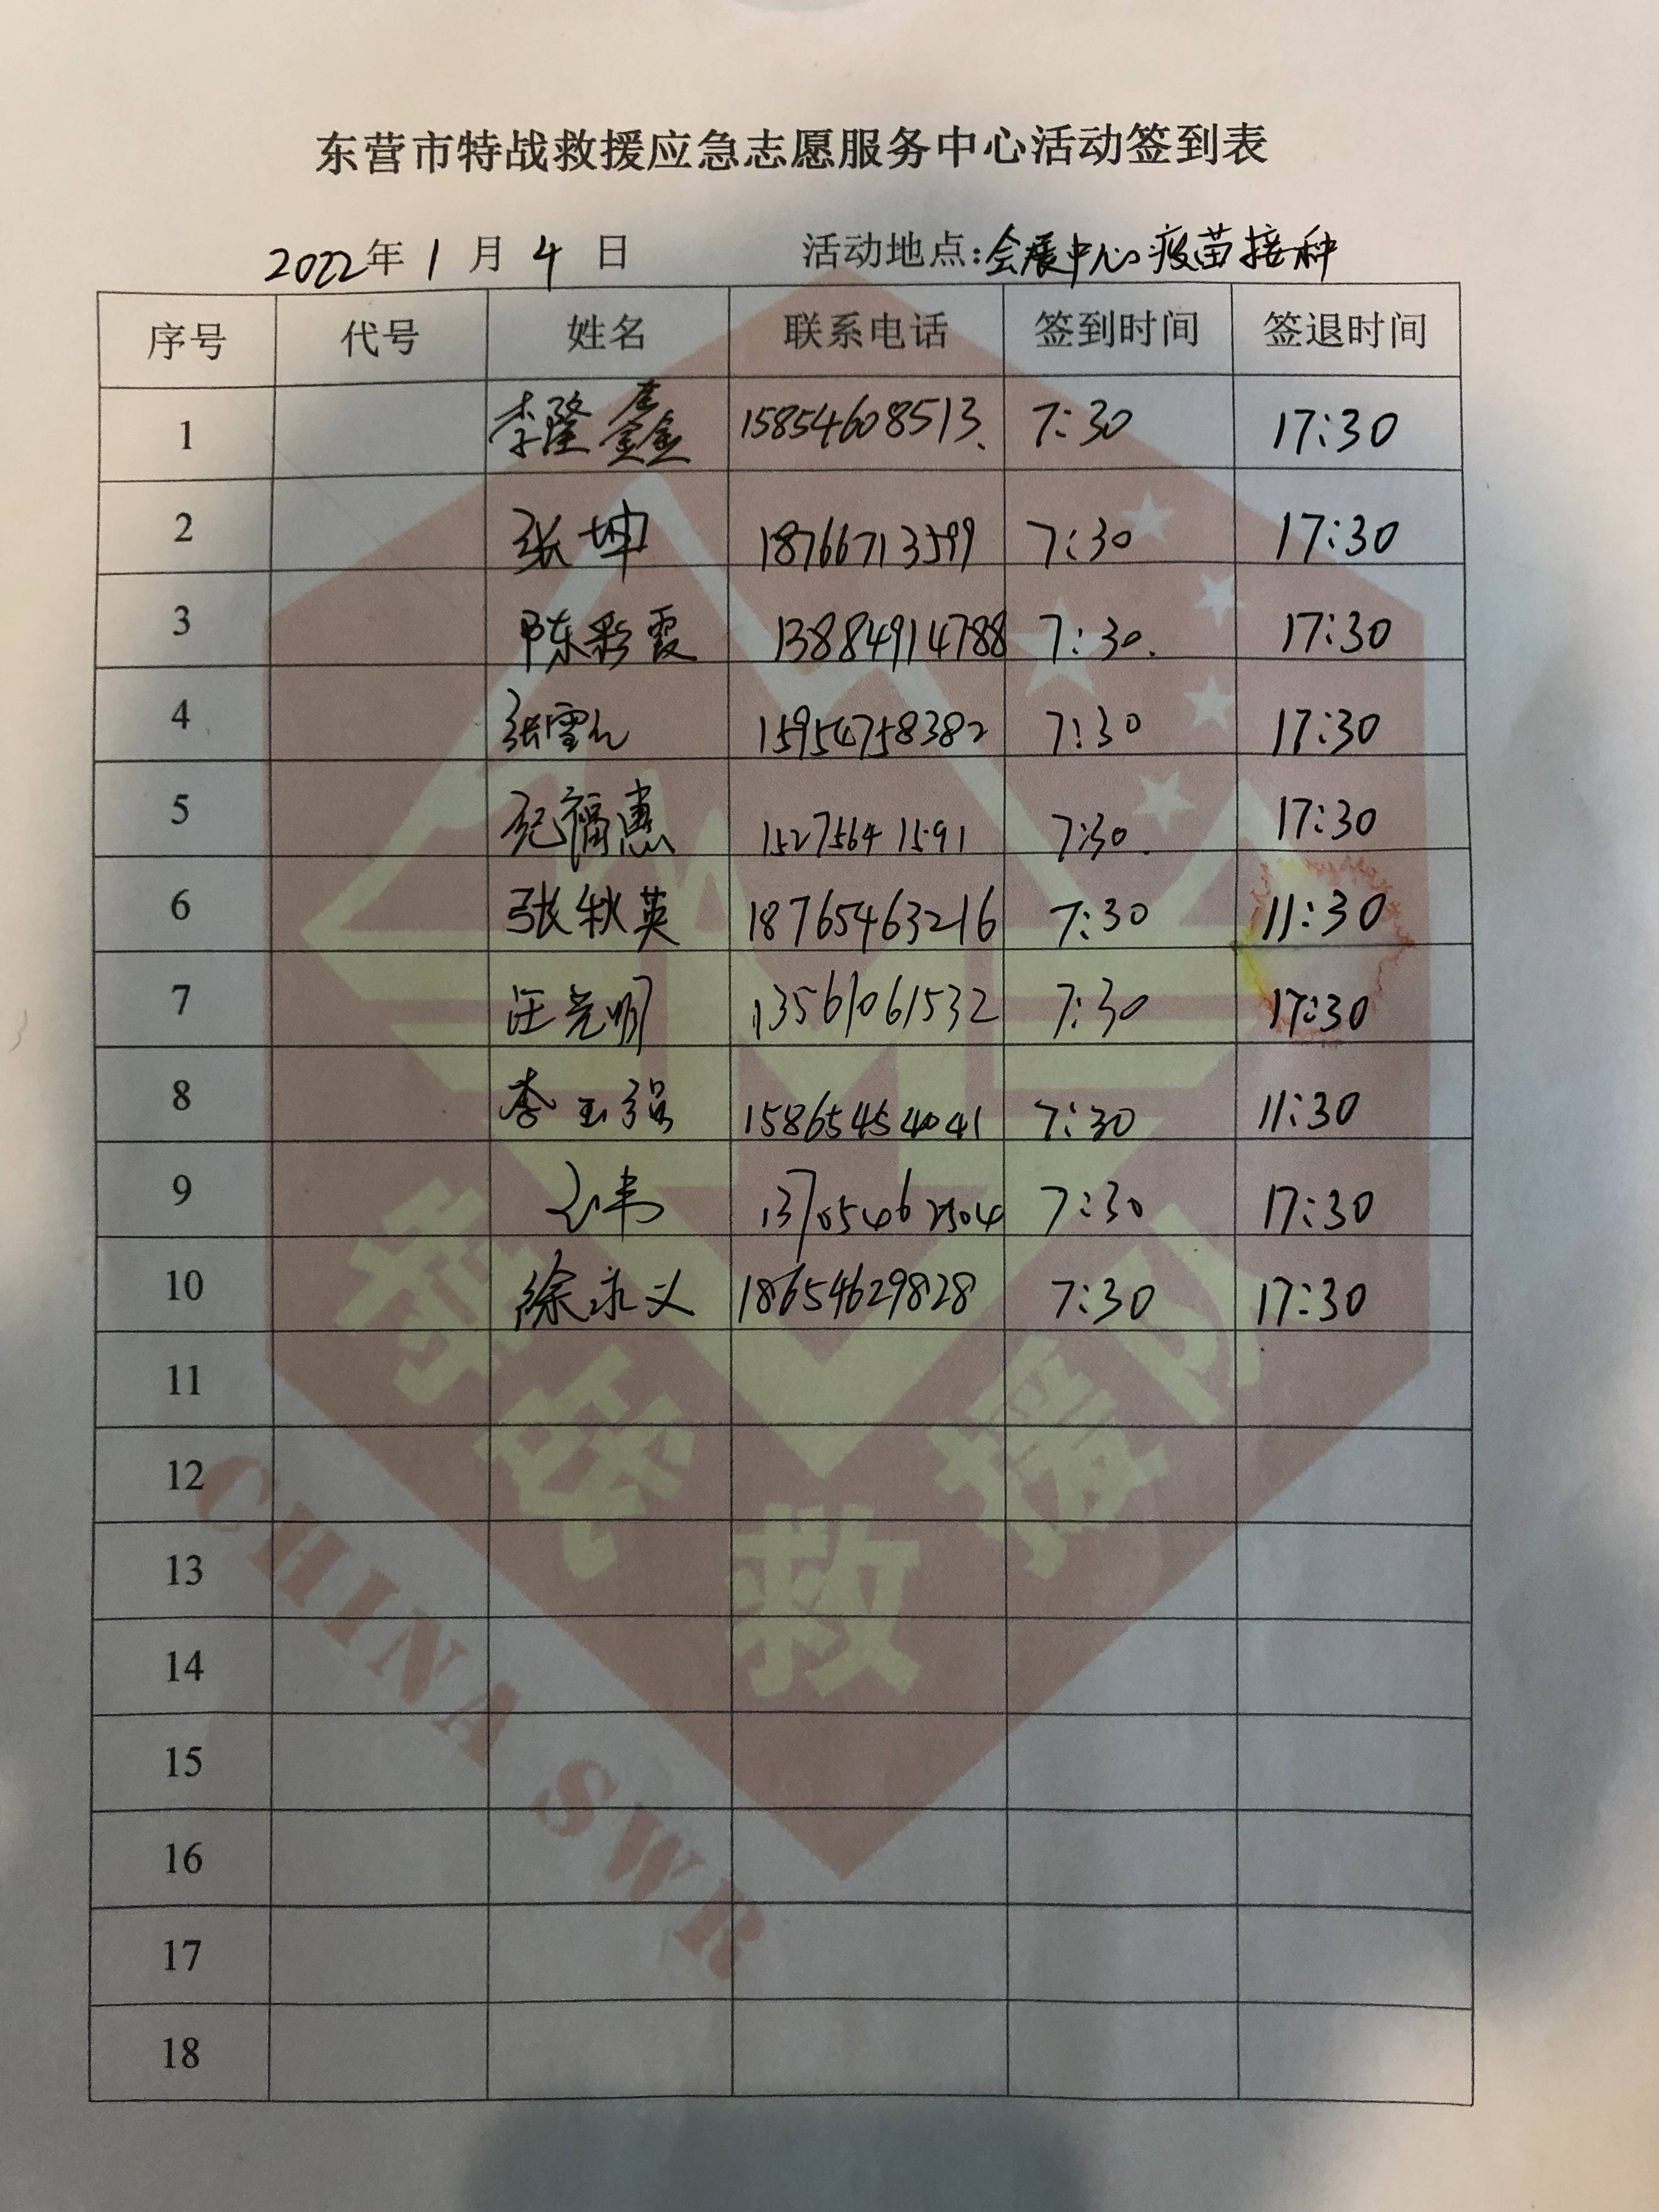 东营市特战救援应急志愿服务中心活动签到表
2022年 1 月 4 日 活动地点:会展中心疫苗接种
序号 代号 姓名 联系电话 签到时间 签退时间
1 李隆鑫 15854608513 7:30 17:30
2 张坤 18766713599 7:30 17:30
3 陈彩霞 13884914788 7:30 17:30
4 张雪 15954758382 7:30 17:30
5 纪福惠 15275641591 7:30 17:30
6 张秋英 18765463216 7:30 11:30
7 汪光明 13561061532 7:30 17:30
8 李玉强 15865454041 7:30 11:30
9 7:30 17:30
10 徐永义 18654629828 7:30 17:30
11
12
13
14
15
16
17
18
特战救援队
CHINA SWR